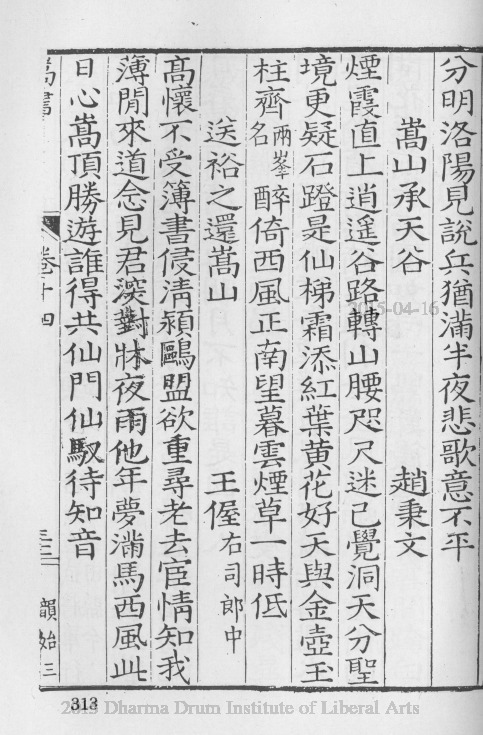 分明洛陽見說兵猶滿半夜悲歌意不平
嵩山承天谷　趙秉文
煙霞直上逍遙谷路轉山腰咫尺迷已覺洞天分聖
境更疑石蹬是仙梯霜添紅葉黃花好天與金壺玉
柱齊兩峯名醉倚西風正南望暮雲煙草一時低
送裕之還嵩山　王僅右司郎中
高懷不受簿書侵淸潁鷗盟欲重尋老去宦情知我
薄閒來道念見君深對牀夜雨他年夢滿馬西風此
日心嵩頂勝遊誰得共仙門仙馭待知音
嵩書
卷十四
三三
韻始三
313
2015-04-16
2015 Dharma Drum Institute of Liberal Arts